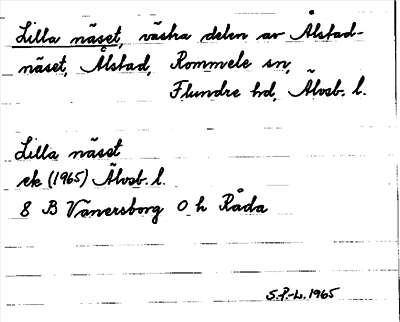 Lilla näset, västra delen av Ålstad-
näset, Ålstad, Rommele sn,
Flundre hd, Älvsb. l.
Lilla näset
ek (1965) Älvsb. l.
8 B Vänersborg 0 h Råda
S.P.-L. 1965